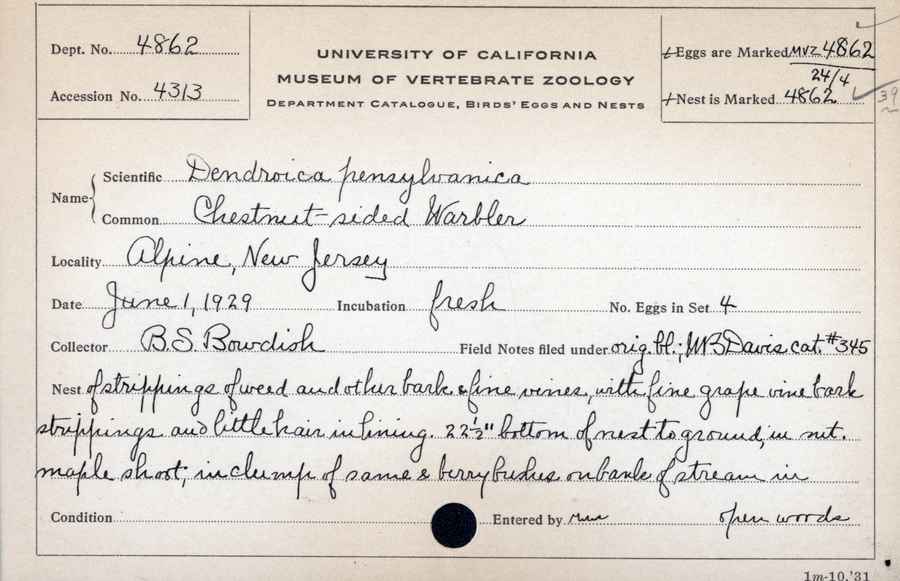 Dept. No. 4862
Accession No. 4313
UNIVERSITY OF CALIFORNIA
MUSEUM OF VERTEBRATE ZOOLOGY
DEPARTMENT CATALOGUE, BIRDS' EGGS AND NESTS
Eggs are Marked MVZ 4862
24/4
Nest is Marked 4862
39
Name
Scientific Dendroica pensylvanica
Common Chestnut-sided Warbler
Locality Alpine, New Jersey
Date June 1, 1929 Incubation fresh No. Eggs in Set 4
Collector B.S. Bowdish Field Notes filed under orig. bl.; WB Davis cat. #345
Nest of strippings of weed and other bark & fine vines, with fine grape vine bark
strippings and little hair in lining. 22½" bottom of nest to ground, in
maple shoot, in clump of same & berry bushes on bank of stream in
open woods
Condition Entered by
1m-10,'31